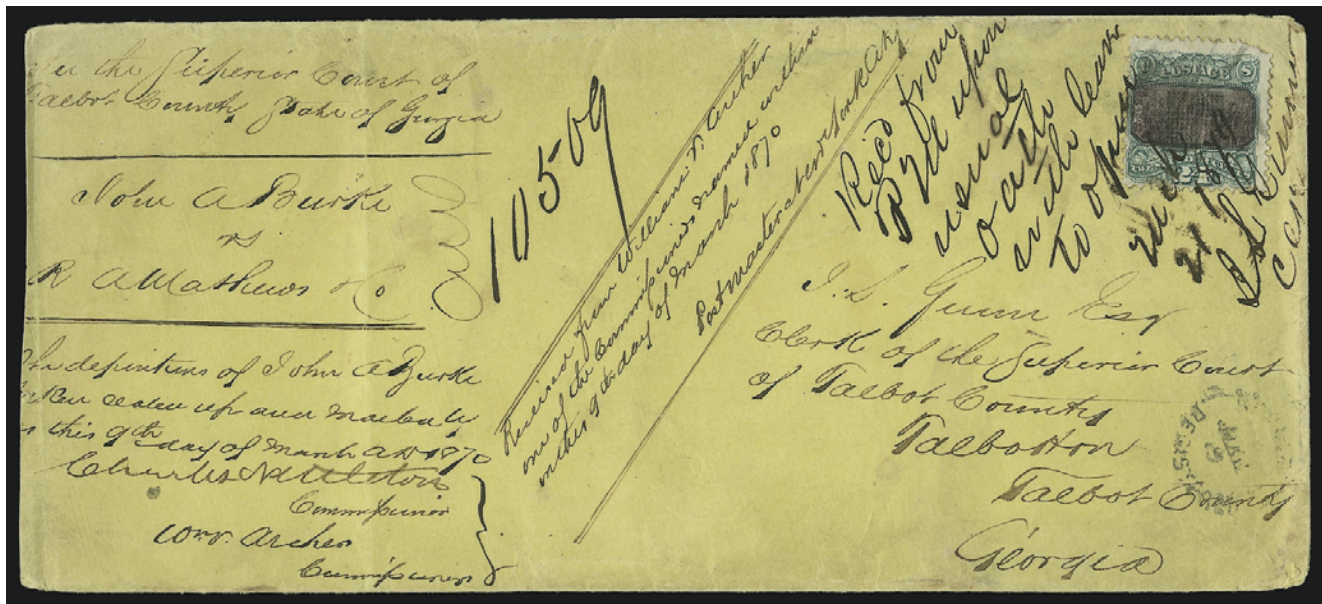 In the Superior Court of
Talbot County State of Georgia
John A Burke
vs
R A Mathews & Co
The depositions of John A Burke
taken sealed up and mailed by
us this 9th day of March AD 1870
Charles Nettleton
Commissioner
Wm. Archer
Commissioner
10509
Received from William V. Archer
one of the Commissioners named within
on this 9th day of March 1870
Postmaster at New York City
Rec'd from
P M upon
usual
oath
with leave
to open
21
J. L. Gunn Esq
Clerk of the Superior Court
of Talbot County
Talbotton
Talbot County
Georgia
MAR
9
REGIS